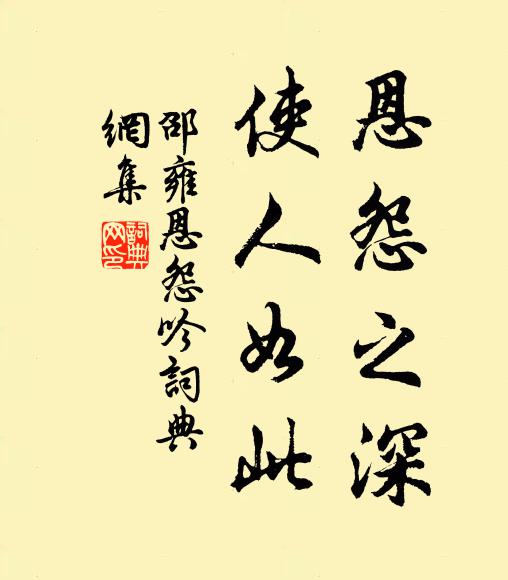 恩怨之深
使人如此
邵雍恩怨吟詞典
網集
詞典
网印